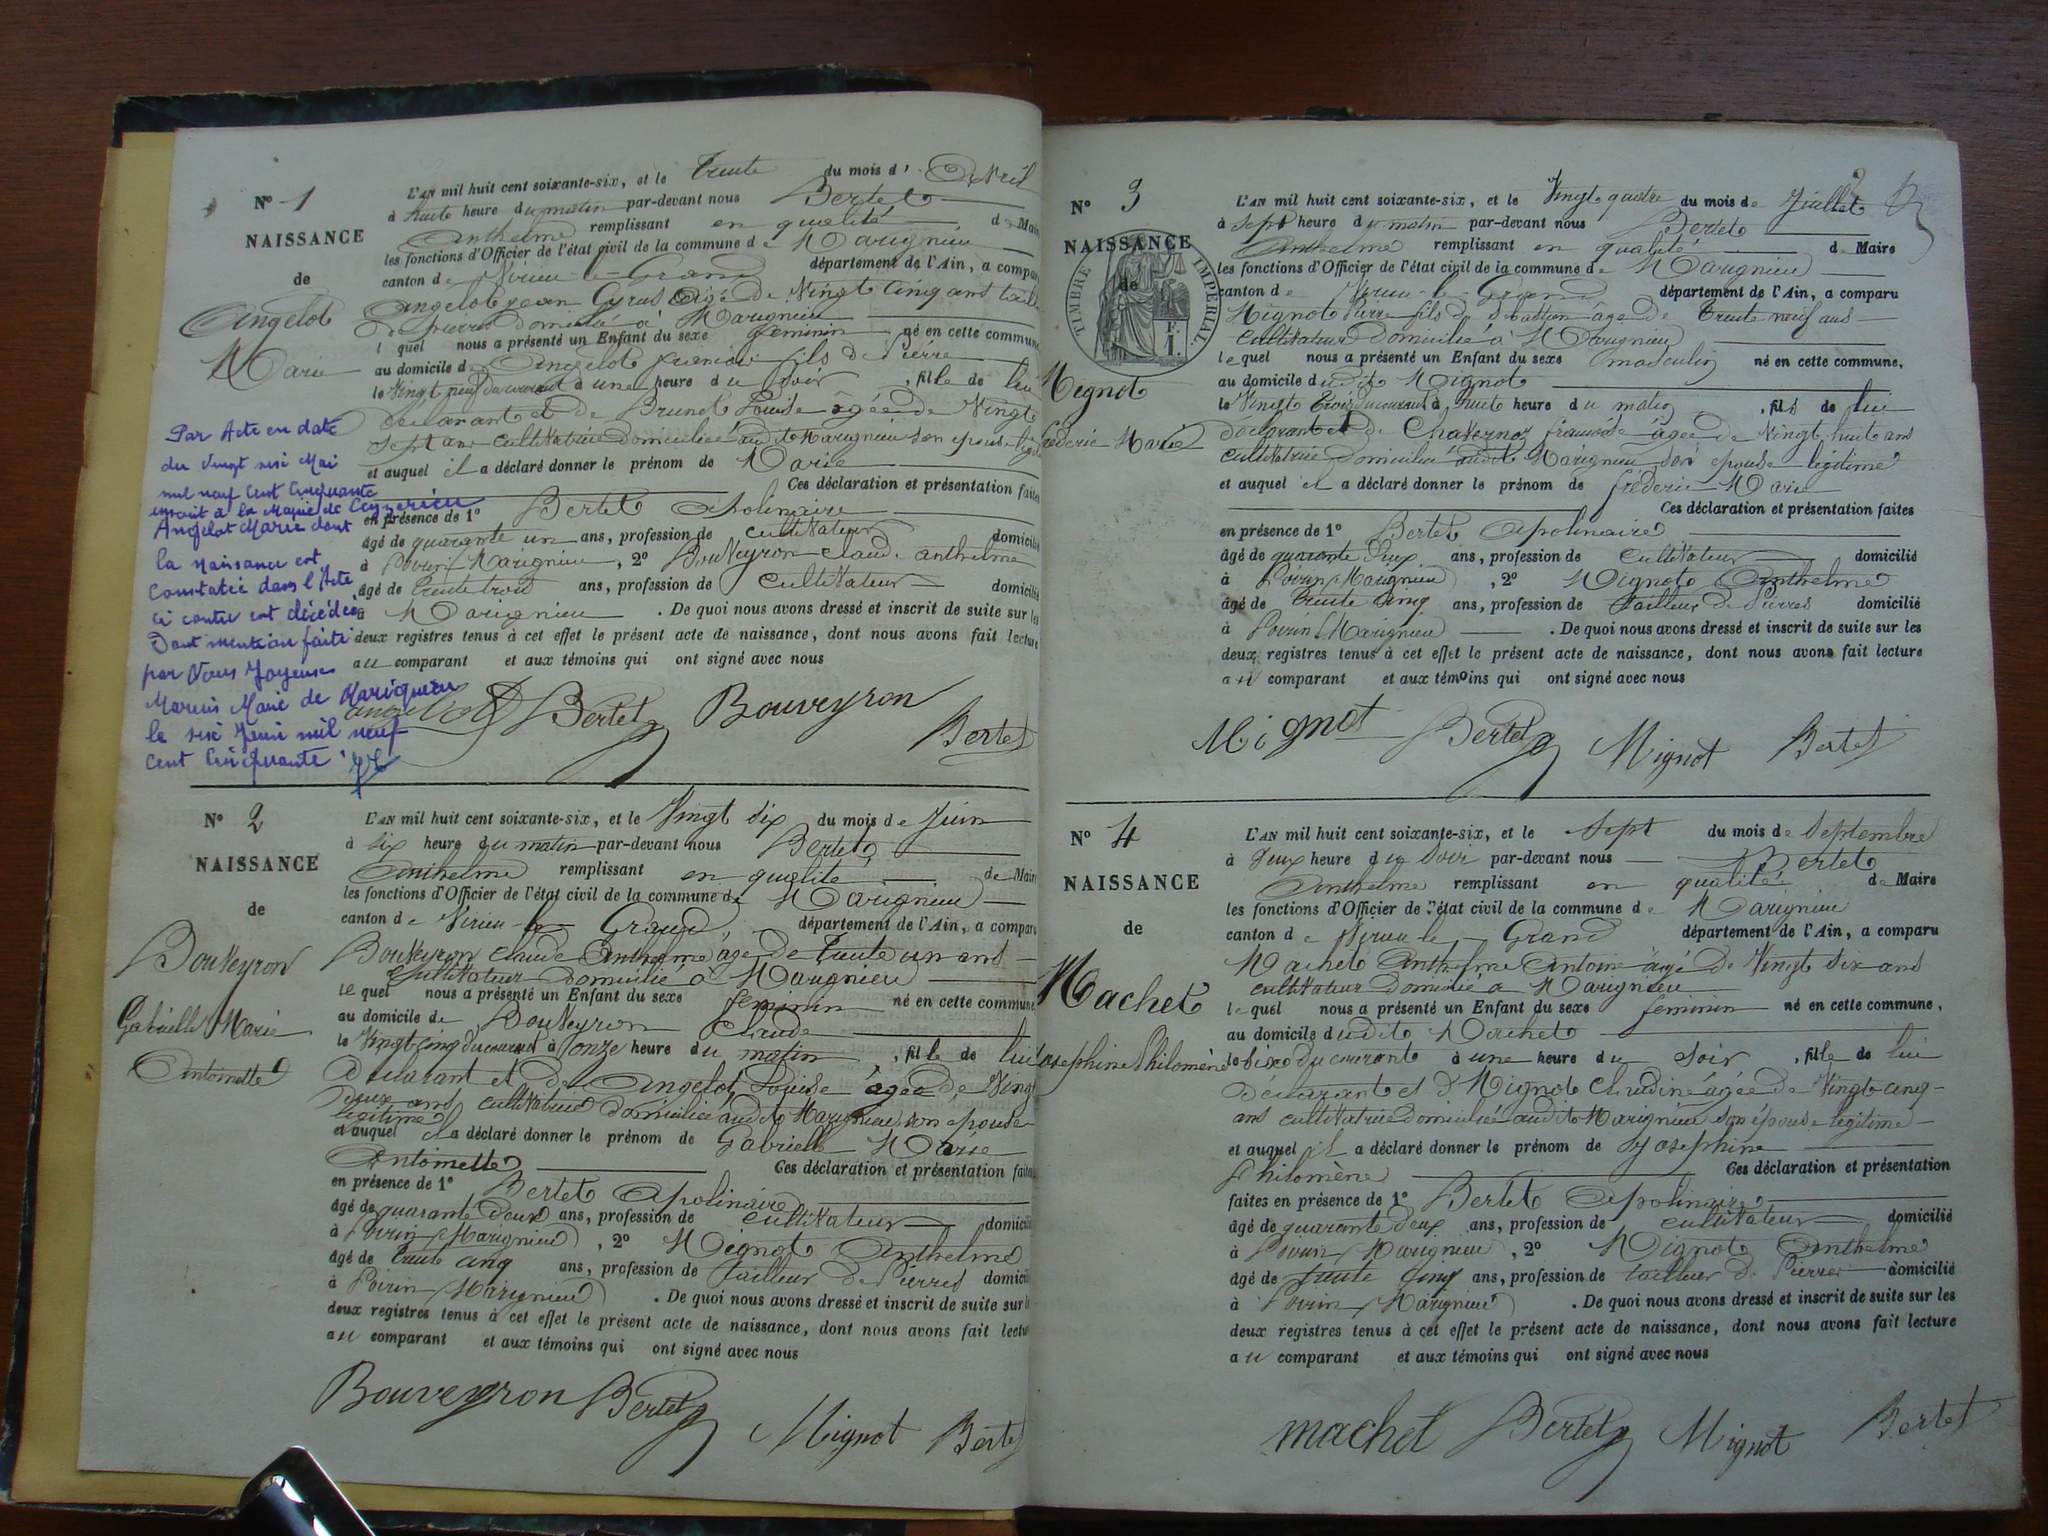 N° 1
NAISSANCE
de
Angelot
Marie
Par Acte en date
du vingt six Mai
mil neuf cent cinquante
inscrit à la Mairie de Ceyzerieu
Angelot Marie dont
la naissance est
constatée dans l'Acte
ci contre est décédée
Dont mention faite
par Nous Joyeuse
Marius Maire de Marignieu
le six Juin mil neuf
cent cinquante
L'AN mil huit cent soixante-six, et le Trente du mois d' Avril
à huit heure du matin par-devant nous Bertet
Anthelme remplissant en qualité de Maire
les fonctions d'Officier de l'état civil de la commune de Marignieu
canton de Virieu-le-Grand département de l'Ain, a comparu
Angelot Jean Cyrus âgé de Vingt cinq ans tailleur
de pierres domicilié à Marignieu
lequel nous a présenté un Enfant du sexe feminin né en cette commune
au domicile de Angelot francois fils de Pierre
le Vingt neuf du courant à une heure du soir, fille de lui
déclarant et de Brunet Louise âgée de Vingt
sept ans cultivatrice domiciliée audit Marignieu son epouse légitime
et auquel il a déclaré donner le prénom de Marie
Ces déclaration et présentation faites
en présence de 1° Bertet Apolinaire
âgé de quarante un ans, profession de cultivateur domicilié
à Poirin (Marignieu), 2° Bouveyron claude anthelme
âgé de trente trois ans, profession de cultivateur domicilié
à Marignieu. De quoi nous avons dressé et inscrit de suite sur les
deux registres tenus à cet effet le présent acte de naissance, dont nous avons fait lecture
au comparant et aux témoins qui ont signé avec nous
angelot Bertet Bouveyron
Bertet
N° 2
NAISSANCE
de
Bouveyron
Gabrielle Marie
Antoinette
L'AN mil huit cent soixante-six, et le Vingt six du mois de Juin
à six heure du matin par-devant nous Bertet
Anthelme remplissant en qualité de Maire
les fonctions d'Officier de l'état civil de la commune de Marignieu
canton de Virieu-le-Grand département de l'Ain, a comparu
Bouveyron claude Anthelme âgé de trente un ans
cultivateur domicilié à Marignieu
lequel nous a présenté un Enfant du sexe feminin né en cette commune
au domicile de Bouveyron Claude
le Vingt cinq du courant à onze heure du matin, fille de lui
déclarant et de Angelot Louise âgée de Vingt
deux ans cultivatrice domiciliée audit Marignieu son epouse
légitime
et auquel il a déclaré donner le prénom de Gabrielle Marie
Antoinette Ces déclaration et présentation faites
en présence de 1° Bertet Apolinaire
âgé de quarante deux ans, profession de cultivateur domicilié
à Poirin (Marignieu), 2° Mignot Anthelme
âgé de trente cinq ans, profession de tailleur de Pierres domicilié
à Poirin (Marignieu). De quoi nous avons dressé et inscrit de suite sur les
deux registres tenus à cet effet le présent acte de naissance, dont nous avons fait lecture
au comparant et aux témoins qui ont signé avec nous
Bouveyron Bertet Mignot Bertet
N° 3
NAISSANCE
de
TIMBRE IMPERIAL
Mignot
fréderic Marie
L'AN mil huit cent soixante-six, et le Vingt quatre du mois de Juillet
à sept heure du matin par-devant nous Bertet
Anthelme remplissant en qualité de Maire
les fonctions d'Officier de l'état civil de la commune de Marignieu
canton de Virieu-le-Grand département de l'Ain, a comparu
Mignot Pierre fils de Sébastien âgé de trente neuf ans
cultivateur domicilié à Marignieu
lequel nous a présenté un Enfant du sexe masculin né en cette commune,
au domicile dudit Mignot
le Vingt trois du courant à huit heure du matin, fils de lui
déclarant et de Chavernoz francoise âgée de Vingt huit ans
cultivatrice domiciliée audit Marignieu son epouse légitime
et auquel il a déclaré donner le prénom de fréderic Marie
Ces déclaration et présentation faites
en présence de 1° Bertet Apolinaire
âgé de quarante deux ans, profession de cultivateur domicilié
à Poirin (Marignieu), 2° Mignot Anthelme
âgé de trente cinq ans, profession de tailleur de Pierres domicilié
à Poirin (Marignieu). De quoi nous avons dressé et inscrit de suite sur les
deux registres tenus à cet effet le présent acte de naissance, dont nous avons fait lecture
au comparant et aux témoins qui ont signé avec nous
Mignot Bertet Mignot Bertet
N° 4
NAISSANCE
de
Machet
Josephine Philomène
L'AN mil huit cent soixante-six, et le sept du mois de Septembre
à deux heure du soir par-devant nous Bertet
Anthelme remplissant en qualité de Maire
les fonctions d'Officier de l'état civil de la commune de Marignieu
canton de Virieu-le-Grand département de l'Ain, a comparu
Machet Anthelme Antoine âgé de Vingt six ans
cultivateur domicilié à Marignieu
lequel nous a présenté un Enfant du sexe feminin né en cette commune,
au domicile dudit Machet
le six du courant à une heure du soir, fille de lui
déclarant et d'Mignot Claudine âgée de Vingt cinq
ans cultivatrice domiciliée audit Marignieu son épouse légitime
et auquel il a déclaré donner le prénom de Josephine
Philomène Ces déclaration et présentation
faites en présence de 1° Bertet Apolinaire
âgé de quarante deux ans, profession de cultivateur domicilié
à Poirin (Marignieu), 2° Mignot Anthelme
âgé de trente cinq ans, profession de tailleur de Pierres domicilié
à Poirin (Marignieu). De quoi nous avons dressé et inscrit de suite sur les
deux registres tenus à cet effet le présent acte de naissance, dont nous avons fait lecture
au comparant et aux témoins qui ont signé avec nous
machet Bertet Mignot Bertet